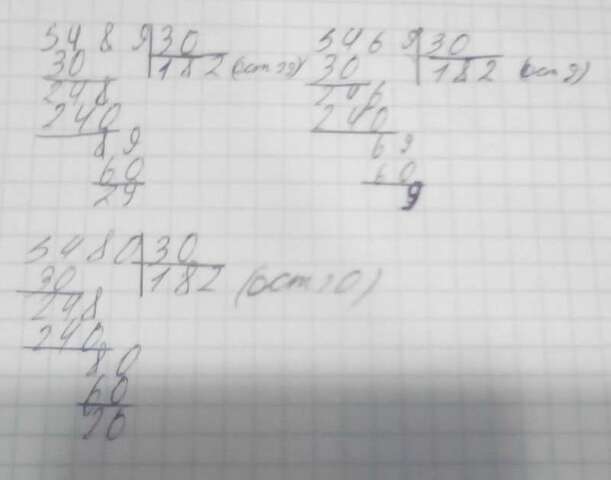 5489 30
30 182 (ост 29)
248
240
89
60
29
5469 30
30 182 (ост 9)
246
240
69
60
9
5480 30
30 182 (ост 20)
248
240
80
60
20